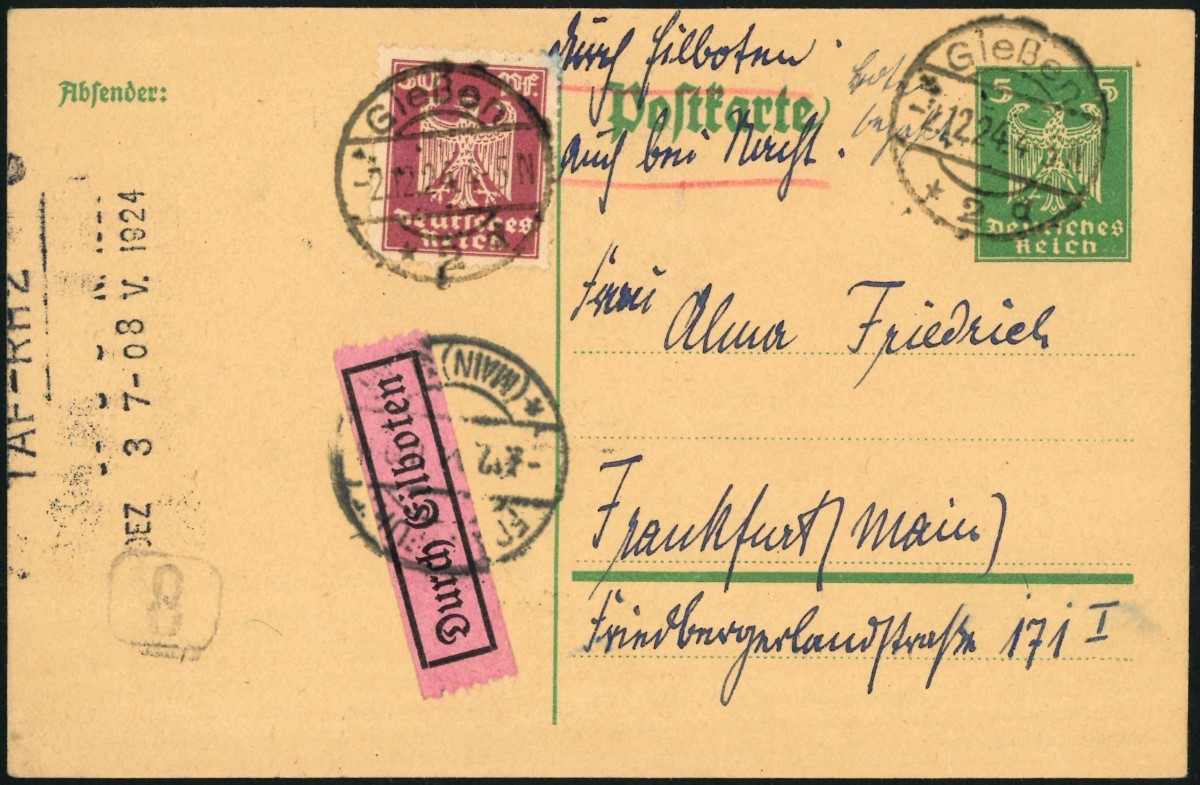 Absender:
Pf.
Deutsches
Reich
Gießen
2.12.24.
N
* 2 d
durch Eilboten
Postkarte
auch bei Nacht.
Gießen
2.12.24.
* 2 d
5 5
Deutsches
Reich
Frau Alma Friedrich
Frankfurt (Main)
Friedbergerlandstraße 171 I
Durch Eilboten
(MAIN)
DEZ 3 7-08 V. 1924
8